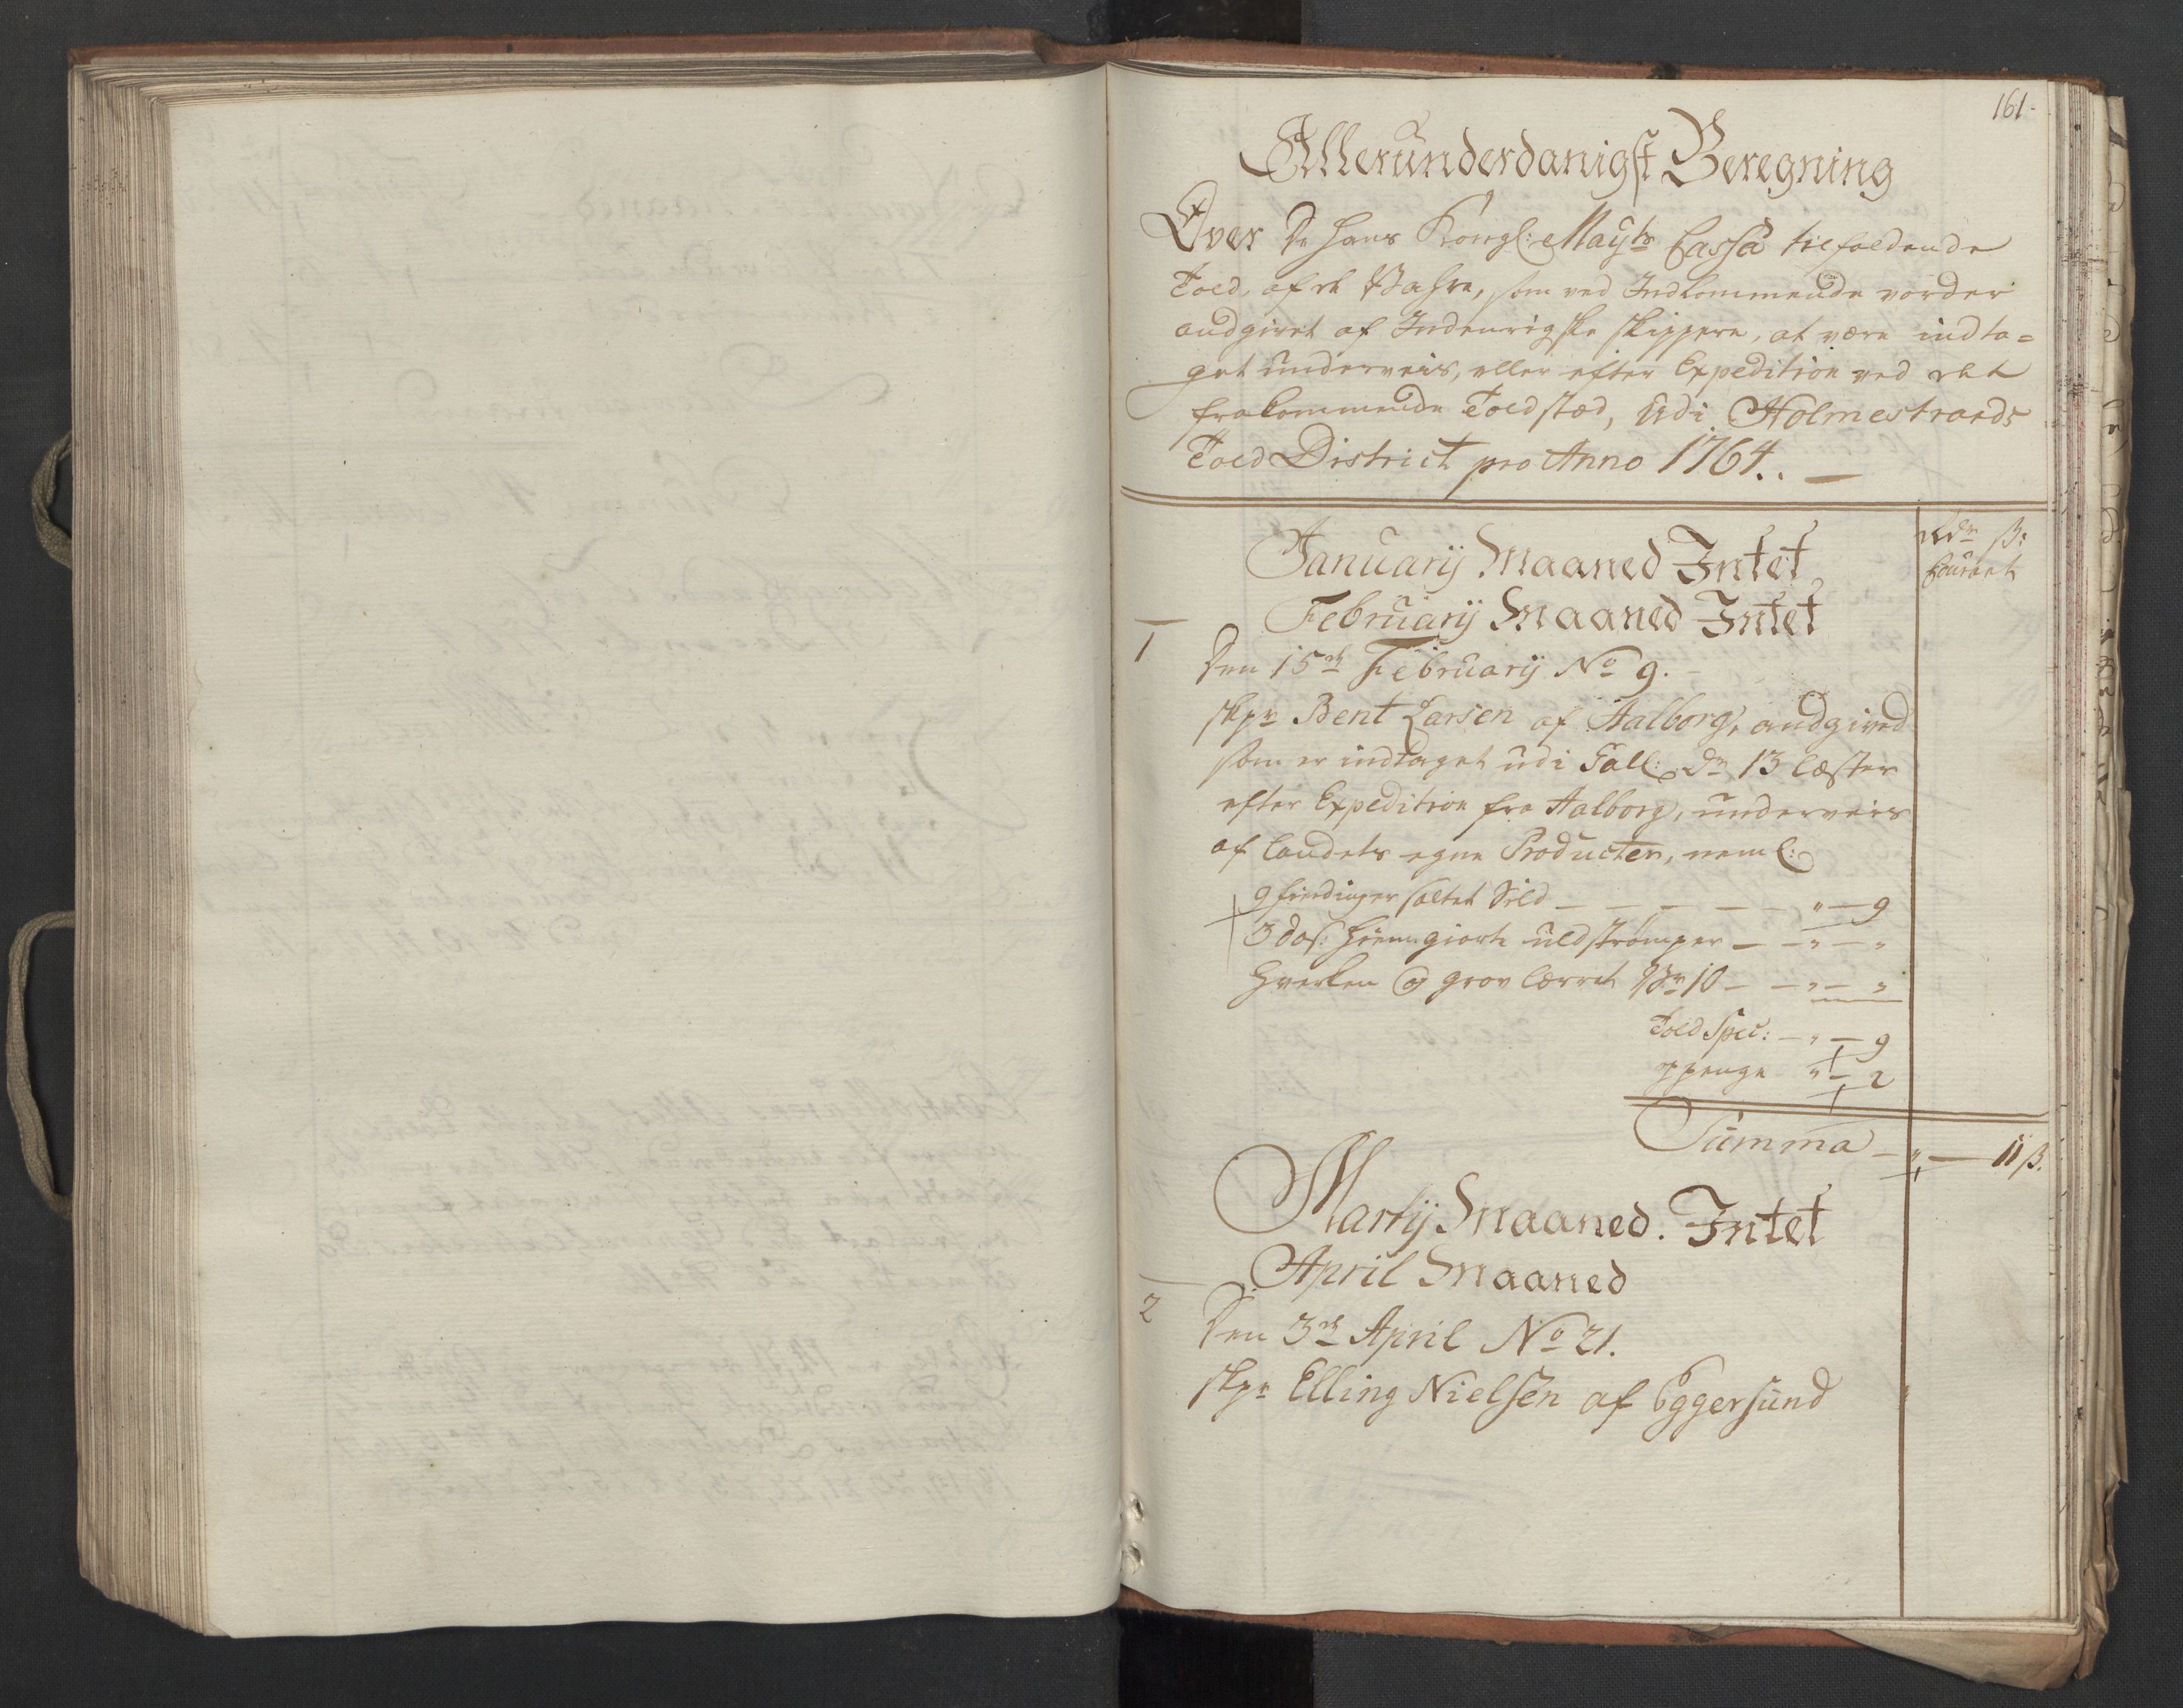 161.
Allerunderdanigst Beregning
Over De Hans Kongl: Mayts Cassa tilfaldende
Told, af de Wahre, som ved Indkommende vorder
andgivet af Indenrigske skippere, at være indta-
get underveis, eller efter Expedition ved det
frakommende Toldsted, udi Holmestrands
Told District pro Anno 1764. –
Rdr ß:
Courant
Januarij Maaned Intet
Februarij Maaned Intet
1
Den 15de Februarij No 9.
skpr Bent Larsen af Aalborg, andgived
som er indtaget udi dr 13 læster
efter Expedition fra Aalborg, underveis
af landets egne Producter, neml:
9 fierdinger saltet Sild – – – – – " – 9
3 dos: hiemgiorte uldstrømper – – " – "
Hverken og grov lærret 10 – – " – "
Told Spec: – " – 9
ppenge " – 2
Summa – " – 11 ß.
Martij Maaned. Intet
April Maaned
2
Den 3de April No 21.
skpr Elling Nielsen af Eggersund